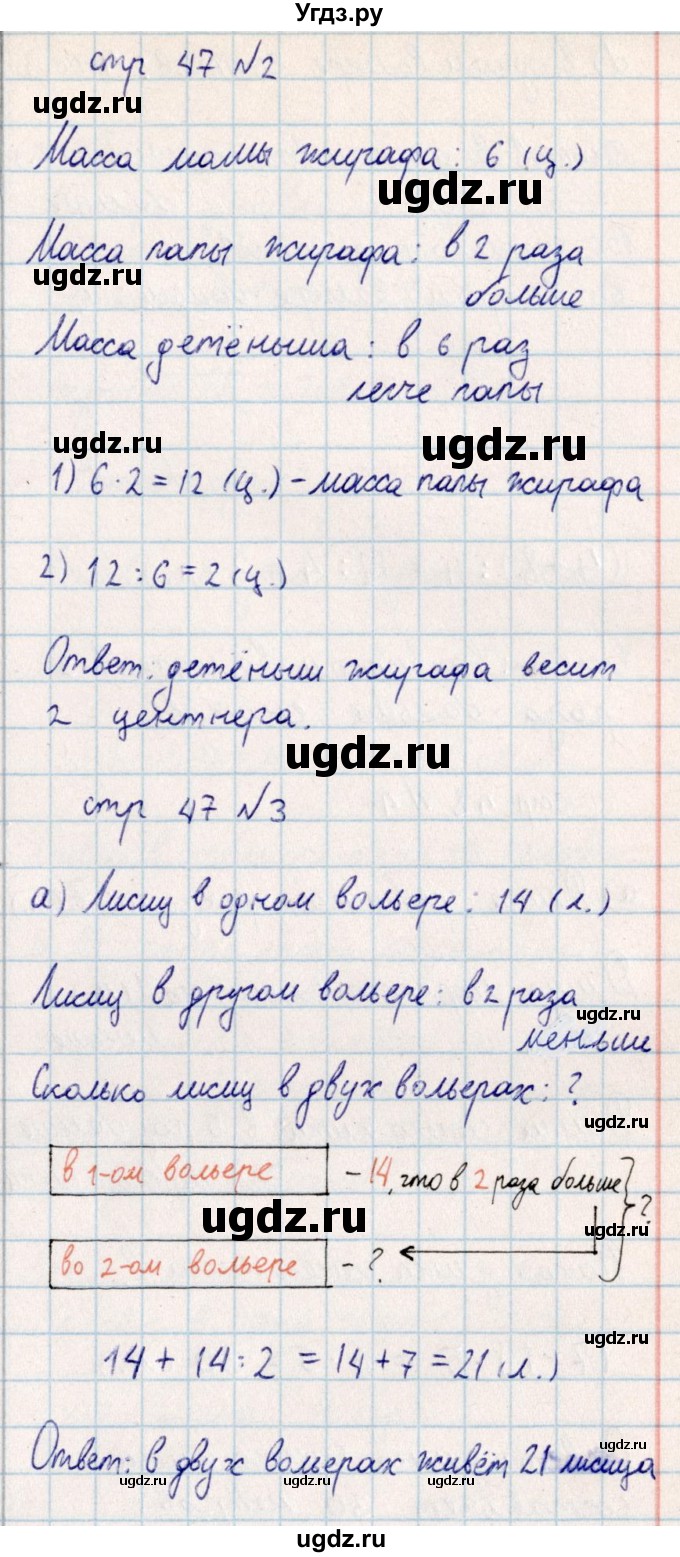 Угдз.ру
стр 47 №2
ugdz.ru
Масса мамы жирафа: 6 (ц.)
ugdz.ru
Масса папы жирафа: в 2 раза
ugdz.ru
больше
Масса детёныша: в 6 раз
легче папы
ugdz.ru ugdz.ru
1) 6·2=12 (ц.) - масса папы жирафа
2) 12:6=2 (ц.)
Ответ: детёныш жирафа весит
2 центнера.
ugdz.ru
стр 47 №3
а) Лисиц в одном вольере: 14 (л.)
Лисиц в другом вольере: в 2 раза
ugdz.ru
меньше
Сколько лисиц в двух вольерах: ?
ugdz.ru
в 1-ом вольере - 14, что в 2 раза больше
ugdz.ru ugdz.ru ?
во 2-ом вольере - ?
ugdz.ru
14 + 14:2 = 14+7 = 21 (л.)
Ответ: в двух вольерах живёт 21 лисица
ugdz.ru ugdz.ru
ugdz.ru